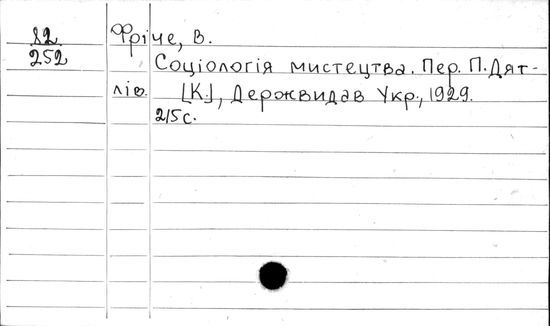 82
252
Фріче, В.
Соціологія мистецтва. Пер. П. Дят-
лів. [К.], Держвидав Укр., 1929.
215 с.